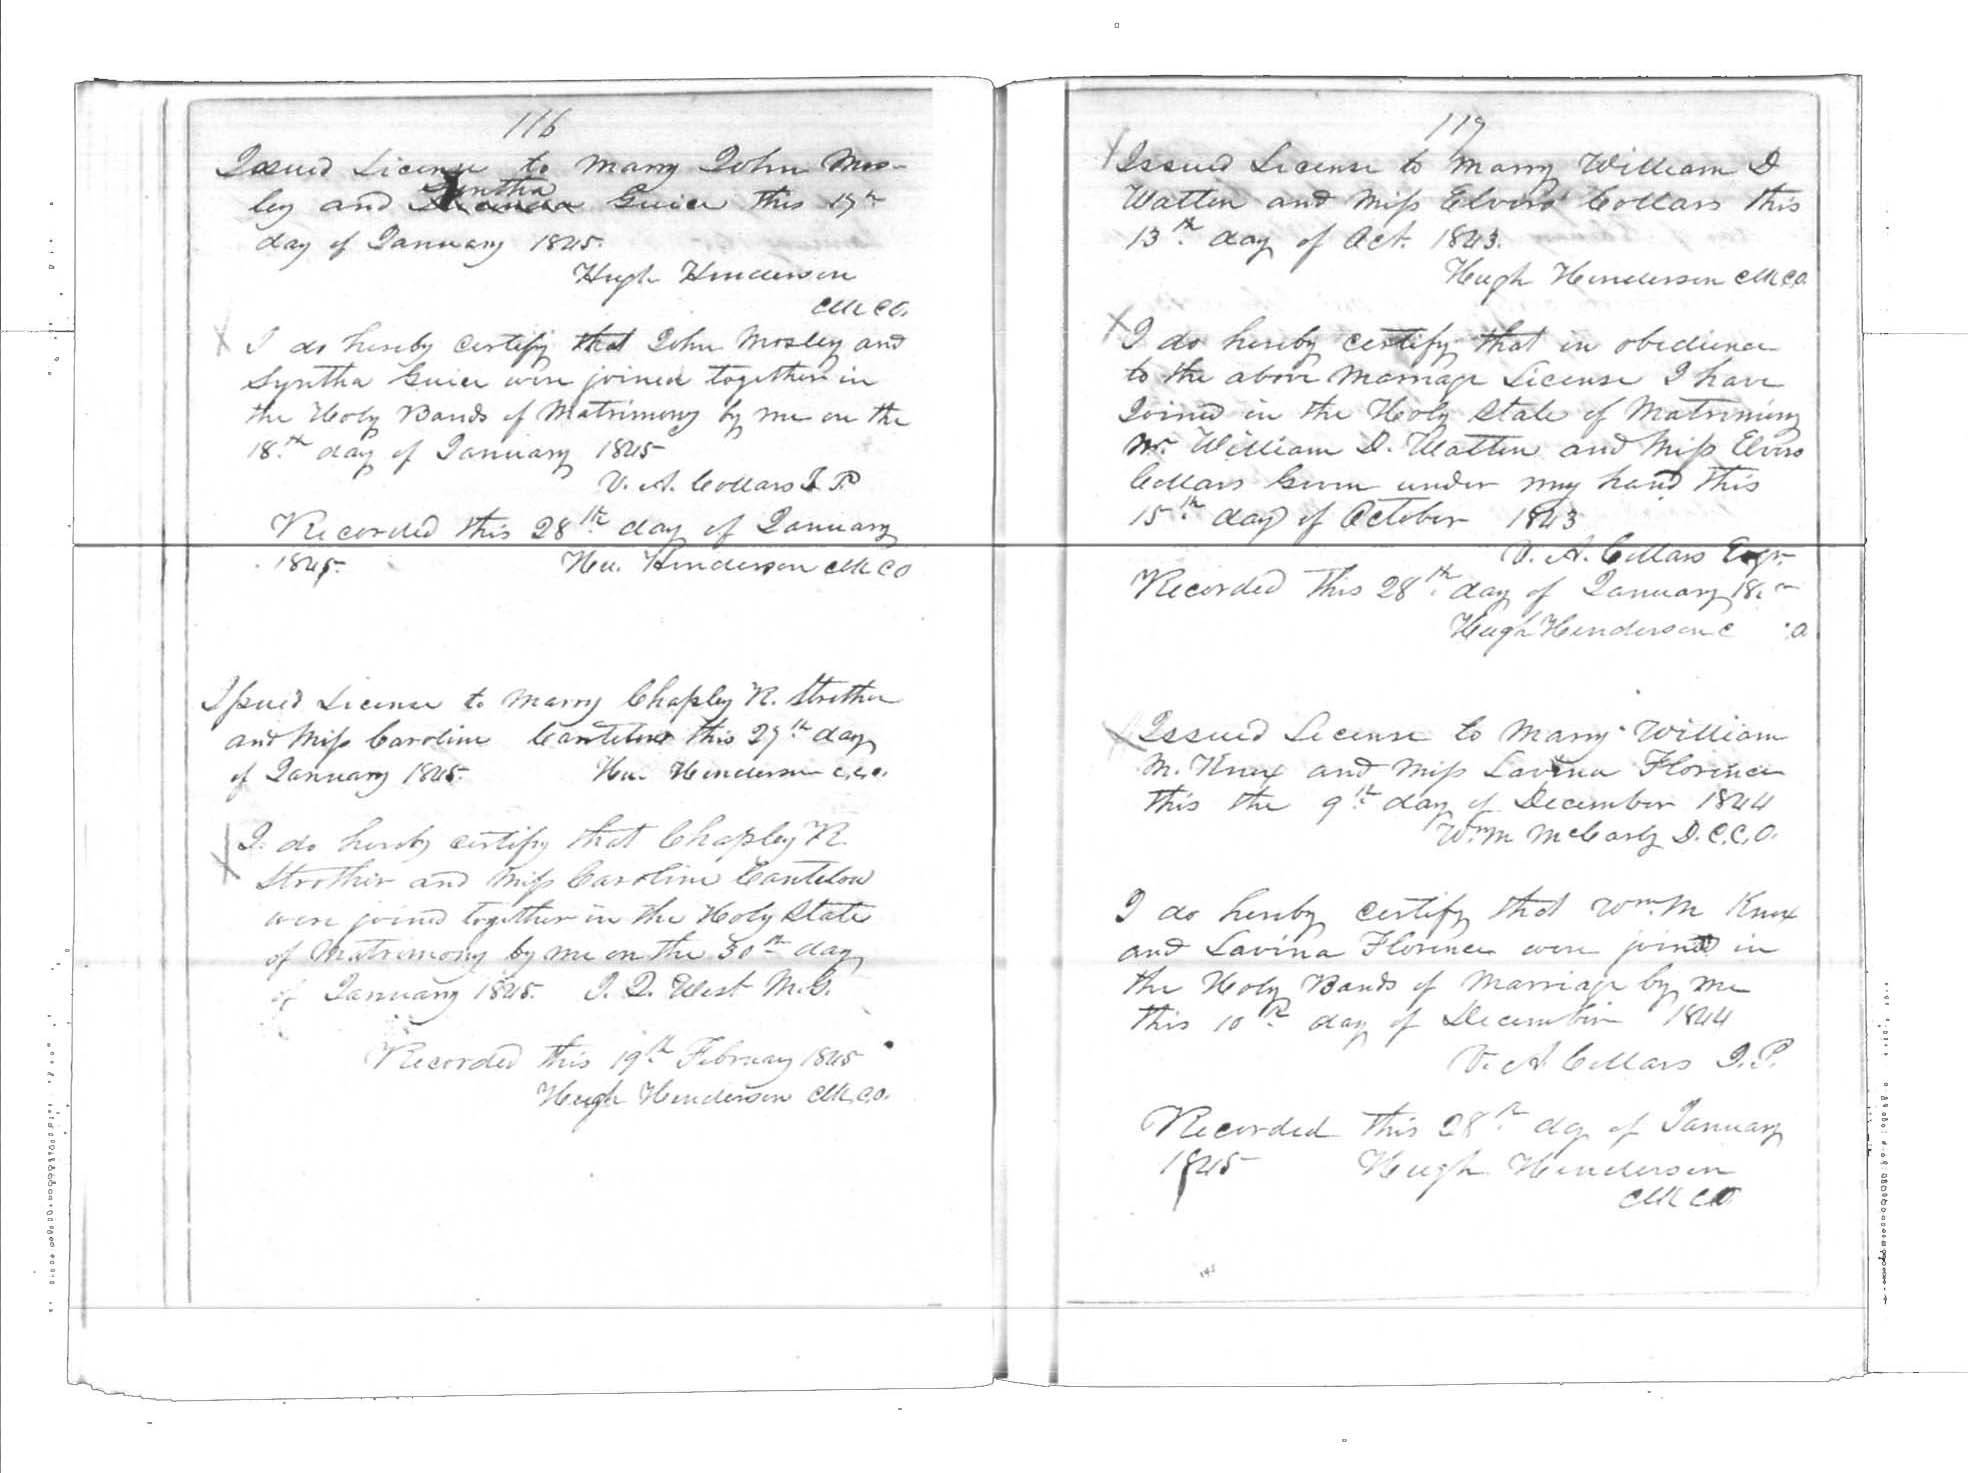 116
Issued License to marry John Mos-
ley and Syntha Guice this 17th
day of January 1845.
Hugh Henderson
Clk CO.
I do hereby certify that John Mosley and
Syntha Guice were joined together in
the Holy Bands of Matrimony by me on the
18th day of January 1845
V. A. Collars J. P.
Recorded this 28th day of January
1845. Hu. Henderson Clk CO
Issued License to marry Chapley R. Strother
and Miss Caroline Cantelow this 27th day
of January 1845. Hu. Henderson c.c.o.
I do hereby certify that Chapley R.
Strother and Miss Caroline Cantelow
were joined together in the Holy State
of Matrimony by me on the 30th day
of January 1845. J. Q. West M.G.
Recorded this 19th February 1845
Hugh Henderson Clk.C.O.
117
Issued License to marry William D
Watten and Miss Elvira Collars this
13th day of Oct. 1843.
Hugh Henderson Clk C.O.
I do hereby certify that in obedience
to the above Marriage License I have
Joined in the Holy State of Matrimony
Mr. William D. Watten and Miss Elvira
Collars Given under my hand this
15th day of October 1843
V. A. Collars Esqr.
Recorded this 28th day of January
Hugh Henderson
Issued License to Marry William
M. Knox and Miss Lavina Florence
this the 9th day of December 1844
Wm M McCarty D.C.C.O.
I do hereby certify that Wm. M Knox
and Lavina Florence were joined in
the Holy Bands of Marriage by me
this 10th day of December 1844
V. A Collars J.P.
Recorded this 28th day of January
1845 Hugh Henderson
Clk CO